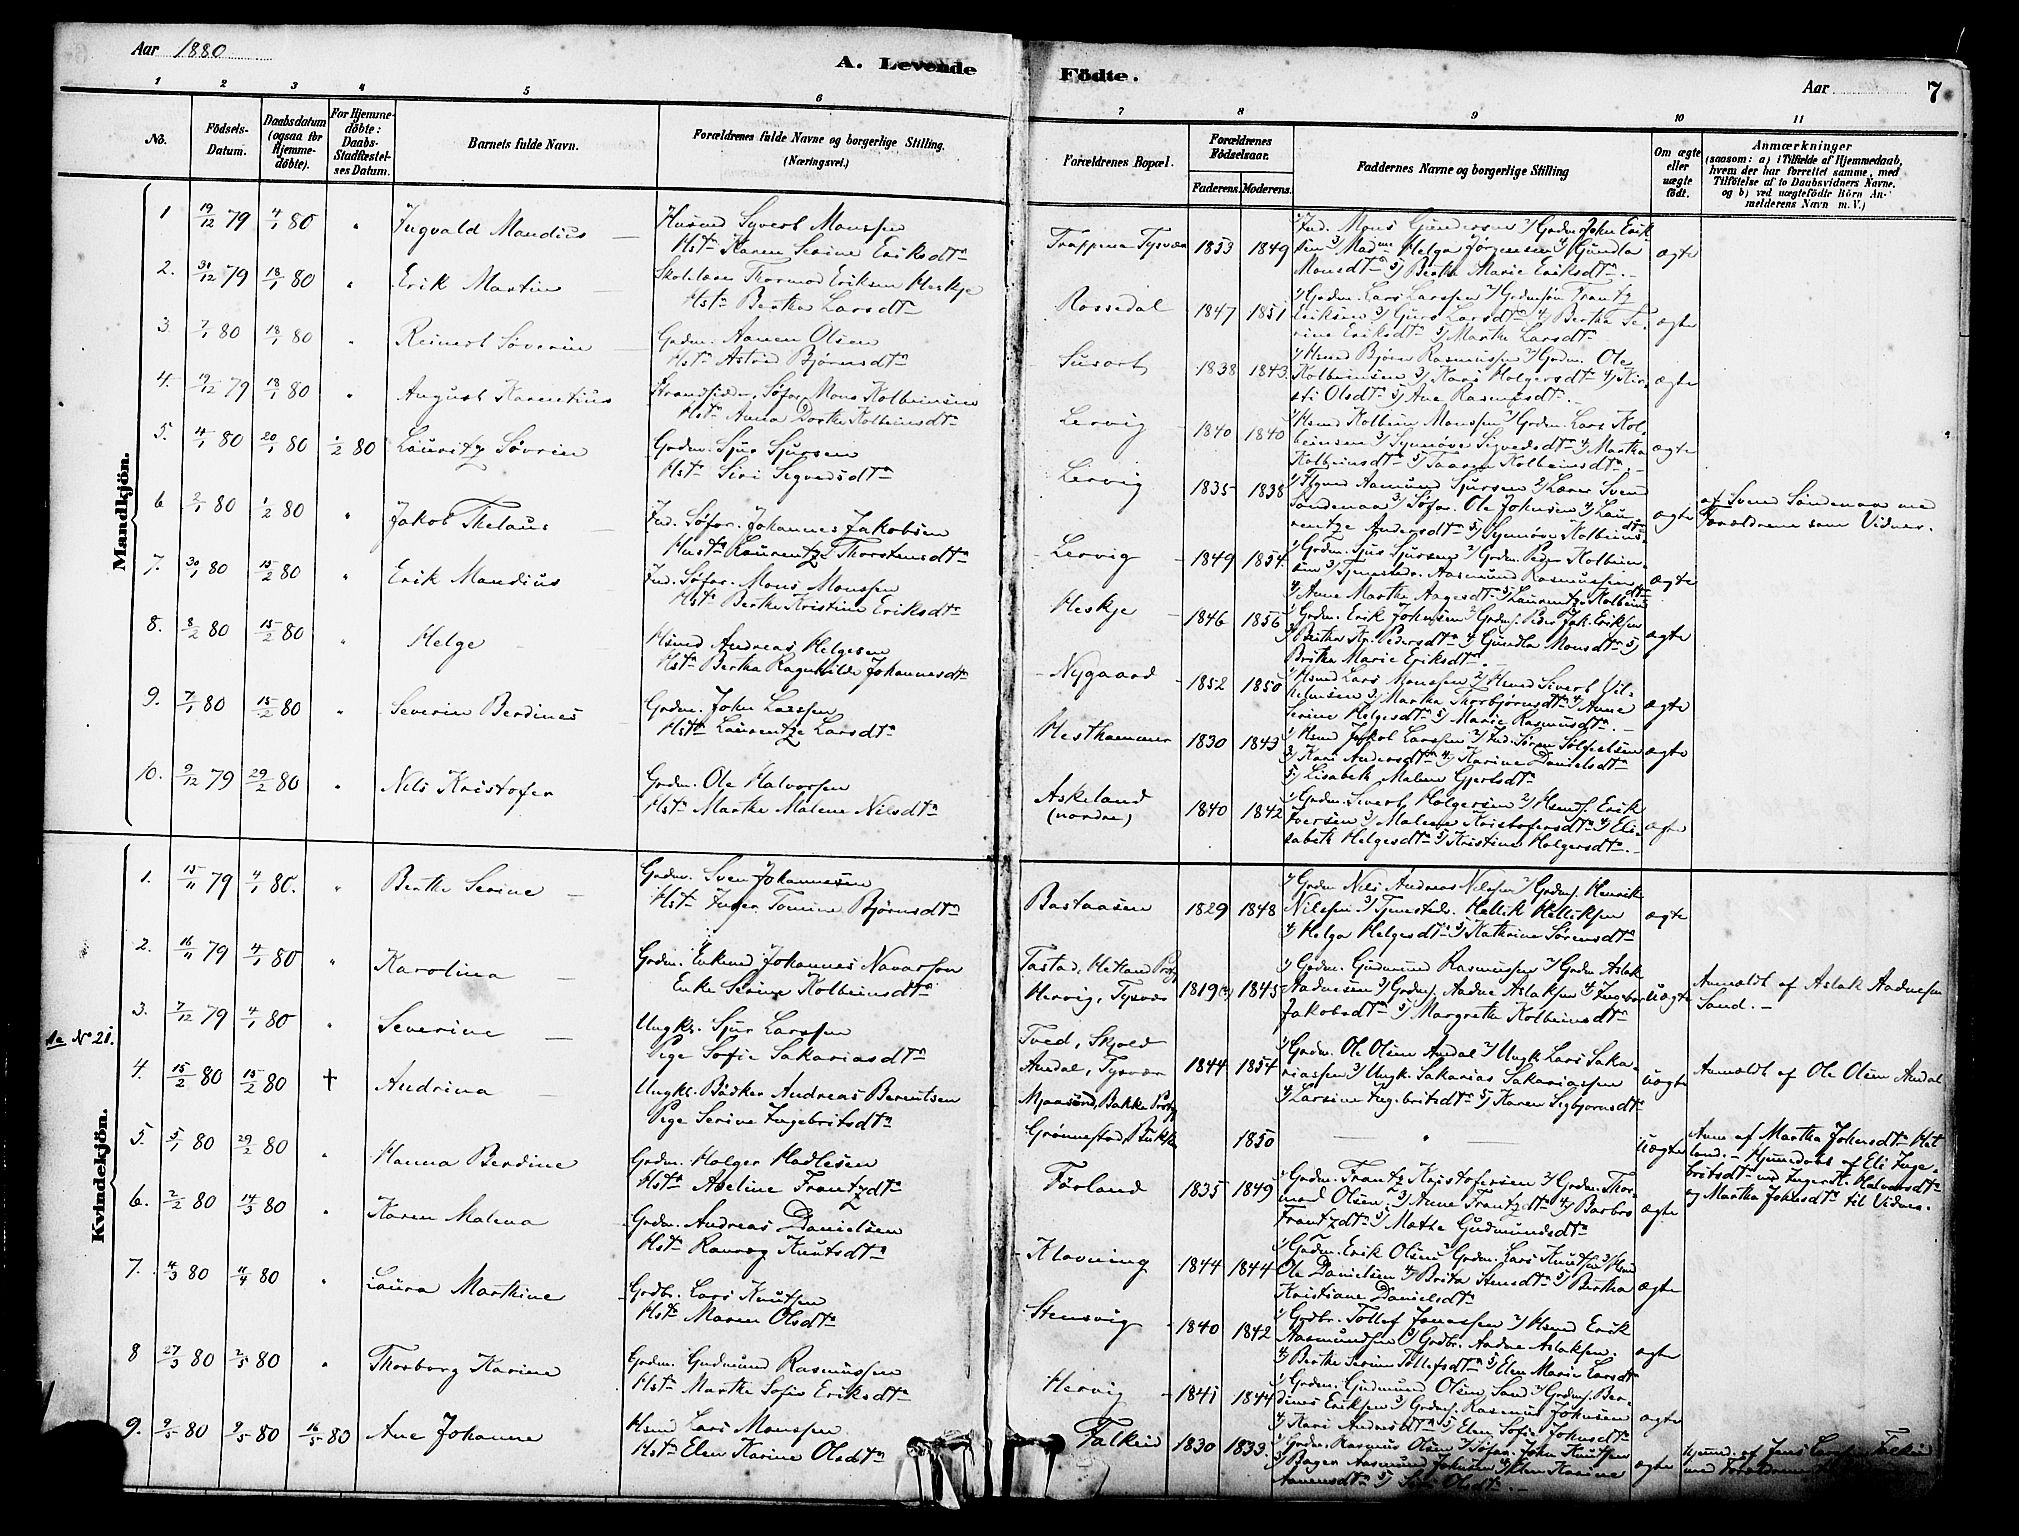 Aar 1880
A. Levende
Födte.
Aar
7
1 2 3 4 5 6 7 8 9 10 11
No.
Födsels-Datum.
Daabsdatum (ogsaa for Hjemme-döbte).
For Hjemme-döbte: Daabs-Stadfæstel-ses Datum.
Barnets fulde Navn.
Forældrenes fulde Navne og borgerlige Stilling.
(Næringsvei.)
Forældrenes Bopæl.
Forældrenes Födselsaar.
Faderens. Moderens.
Faddernes Navne og borgerlige Stilling
Om ægte eller uægte födt.
Anmærkninger
(saasom: a) i Tilfælde af Hjemmedaab,
hvem der har forrettet samme, med
Tilföielse af to Daabsvidners Navne,
og b) ved uægtefödte Börn An-
melderens Navn m. V.)
Mandkjön.
1 19/12 79 4/1 80 " Ingvald Mandius
Husmd Syvert Monssen
Hst. Karen Serine Eriksdtr
Tysvær 1853 1849
Ind. Mons Gundersen 2/ Grdm John Erik-
sen 3/ Mad. Helga Jørgensen 4/ Gundla
Monsdtr 5/ Berthe Marie Eriksdtr
ægte
2. 31/12 79 18/1 80 " Erik Martin
Skolelærer Thormod Eriksen Heskje
Hst. Bertha Larsdtr
Rossedal 1847 1851
1/ Grdm. Lars Larssen 2/ Grdmsøn Frantz
Eriksen 3/ Guro Larsdtr 4/ Bertha Se-
rine Eriksdtr 5/ Martha Larsdtr
ægte
3. 7/1 80 18/1 80 " Reinert Søverin
Grdm. Aanen Olsen
Hst. Astrid Bjørnsdtr
Susort 1838 1843
1/ Hsmd Bjørn Rasmussen 2/ Grdm. Ole
Kolbeinsen 3/ Kari Holgersdtr 4/ Kir-
sti Olsdtr 5/ Ane Rasmusdtr
ægte
4. 19/12 79 18/1 80 " August Karentius
Strandsidder, Søfar. Mons Kolbeinsen
Hst. Anna Dorthe Kolbeinsdtr
Lervig 1840 1840
1/ Hsmd Kolbein Monssen 2/ Grdm. Lars Kol-
beinsen 3/ Synnøve Sigvedsdtr 4/ Martha
Kolbeinsdtr 5/ Taaren Kolbeinsdtr
ægte
5. 4/1 80 20/1 80 1/2 80 Lauritz Søvrin
Grdm. Sjur Sjursen
Hst. Siri Segvedsdtr
Lervig 1835 1838
Aamund Sjursen 2/ Lærer Sven
Søndenaa 3/ Søfar. Ole Johnsen 4/ Lau-
rentze Andersdtr 5/ Synnøve Kolbeinsdtr
ægte
af Svend Søndenaa med
Forældrene som Vidner.
6 2/1 80 1/2 80 " Jakob Thelaus
Ind. Søfar. Johannes Jakobsen
Hust. Laurentze Thorstensdtr
Lervig 1849 1854
1/ Grdm. Sjur Sjursen 2/ Grdm. Peder Kolbein-
sen 3/ Tjenestedr. Aasmund Rasmussen
4/ Anne Marthe Aagesdtr 5/ Laurentze Kolbeinsdtr
ægte
7. 30/1 80 15/2 80 " Erik Mandius
Ind. Søfar. Mons Monssen
Hst. Berthe Kristine Eriksdtr
Heskje 1846 1856
1/ Grdm. Erik Johnsen 2/ Grdms. Peder Joh. Eriksen
3/ Bertha Kr. Pedersdtr 4/ Gundla Monsdtr 5/
Britha Marie Eriksdtr
ægte
8. 8/2 80 15/2 80 " Helge
Hsmd Andreas Helgesen
Hst. Bertha Ragnhilde Johannesdtr
Nygaard 1852 1850
1/ Hsmd Lars Monssen 2/ Hsmd Sivert Vil-
helmsen 3/ Martha Thorbjørnsdtr 4/ Anne
Serine Helgesdtr 5/ Marie Rasmusdtr
ægte
9. 7/1 80 15/2 80 " Severin Berdines
Grdm. John Larssen
Hst. Laurentze Larsdtr
Hesthammer 1830 1843
1/ Hsmd Jakob Larssen 2/ Ind. Søren Solfestsen
3/ Kari Andersdtr 4/ Karine Danielsdtr
5/ Lisabeth Malene Gjertsdtr
ægte
10. 9/12 79 29/2 80 " Nils Kristofer
Grdm. Ole Halvorsen
Hst. Marthe Malene Nilsdtr
Askeland (nordre) 1840 1842
1/ Grdm. Sivert Holgersen 2/ Hsmd. Erik
Iversen 3/ Malene Kristofersdtr 4/ Eli-
sabeth Helgesdtr 5/ Kristine Holgersdtr
ægte
Kvindekjön.
1. 15/11 79 4/1 80. " Berthe Serine
Grdm. Sven Johannesen
Hst. Inger Tomine Bjørnsdtr
Bastaasen 1829 1848
1/ Grdm Nils Andreas Nilssen 2/ Grdms. Henrik
Nilssen 3/ Tjenestedr. Hellik Helliksen
4/ Helga Helgesdtr 5/ Kathrine Sørensdtr
ægte
2. 16/11 79 4/1 80 " Karolina
Grdm. Enkemd Johannes Navarsen
Enke Serine Kolbeinsdtr
Tastad, Hetland Prstg
Hervig, Tysvær 1819(?) 1845
1/ Grdm. Gudmund Rasmussen 2/ Grdm Aslak
Aadnesen 3/ Grdms. Aadne Aslaksen 4/ Ingebor
Jakobsdtr 5/ Margrethe Kolbeinsdtr
uægte
Anmeldt af Aslak Aadnesen
Sand.
1a No 21.
3. 7/12 79 4/1 80 " Severine
Ungkr. Sjur Larssen
Pige Sofie Sakariasdtr
Tved, Skjold
Amdal, Tysvær 1844 1854
1/ Grdm. Ole Olsen Amdal 2/ Ungk Lars Saka-
riassen 3/ Ungk. Sakarias Sakariassen
4/ Larsine Ingebritsdtr 5/ Karen Sigbjørnsdtr
uægte
Anmeldt af Ole Olsen Amdal
4. 15/2 80 15/2 80 † Andrina
Ungkr. Bødker Andreas Berentsen
Pige Serine Ingebritsdtr
Mjaasund, Bakke Prstg
Grønnestad, Bukke 1850
— " —
uægte
Anm. af Martha Johnsdtr Het-
land. - Hjemmedøbt af Eli Inge-
britsdtr med Inger K. Halvorsdtr
og Martha Johnsdtr til Vidner.
5. 5/1 80 29/2 80 " Hanna Berdine
Grdm. Holger Hadlesen
Hst. Abeline Frantzdtr
Førland 1835 1849
1/ Grdm. Frantz Kristofersen 2/ Grdm. Thor-
mod Olsen 3/ Anne Frantzdtr 4/ Barbro
Frantzdtr 5/ Marthe Gudmundsdtr
ægte
6. 2/2 80 14/3 80 " Karen Malena
Grdm. Andreas Danielsen
Hst. Ranveg Knutsdtr
Kløvning 1844 1844
1/ Grdm. Erik Olsen 2/ Grdm. Lars Knutsen 3/ Hsmd
Ole Danielsen 4/ Brita Stensdtr 5/ Bertha
Kristiane Danielsdtr
ægte
7. 4/3 80 11/4 80 " Laura Marthine
Grdbr. Lars Knutsen
Hst. Maren Olsdtr
Stensvig 1840 1842
1/ Grdbr. Tollef Jonassen 2/ Hsmd Erik
Aasmundsen 3/ Grdbr. Aadne Aslaksen.
4/ Berthe Serine Tollefsdtr 5/ Elen Marie Larsdtr
ægte
8 27/3 80 2/5 80 " Thorborg Karine
Grdm. Gudmund Rasmussen
Hst. Marthe Sofie Eriksdtr
Hervig 1841 1844
1/ Grdm. Gudmund Olsen Sand 2/ Grdms. Ber-
dines Eriksen 3/ Grdms. Rasmus Johnsen
4/ Kari Andersdtr 5/ Elen Sofie Johnsdtr
ægte
9. 9/5 80 9/5 80 16/5 80 Ane Johanne
Hsmd Lars Monssen
Hst. Elen Karine Olsdtr
Falkeid 1830 1833
1/ Grdm. Rasmus Olsen 2/ Søfar. John Knutsen
3/ Bager Aasmund Johnsen 4/ Elen Karine
Aanensdtr 5/ Olsdtr
ægte
Hjemmed. af Jens Larssen Falkeid
med Forældrene